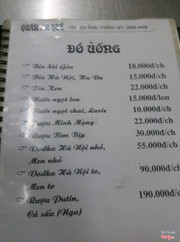 QUÁN
ĐỒ UỐNG
Bia Sài Gòn 18.000đ/ch
Bia Hà Nội, Hu Da 15.000đ/ch
Bia Ken 22.000đ/ch
Nước ngọt lon 15.000đ/lon
Nước ngọt chai, Lavie 10.000đ/ch
Rượu Minh Mạng 22.000đ/ch
Rượu Bìm Bịp 30.000đ/ch
Vodka Hà Nội nhỏ, 55.000đ/ch
Men nhỏ
Vodka Hà Nội to, 90.000đ/ch
Men to
Rượu Putin, 190.000đ/ch
Cá sấu (Nga)